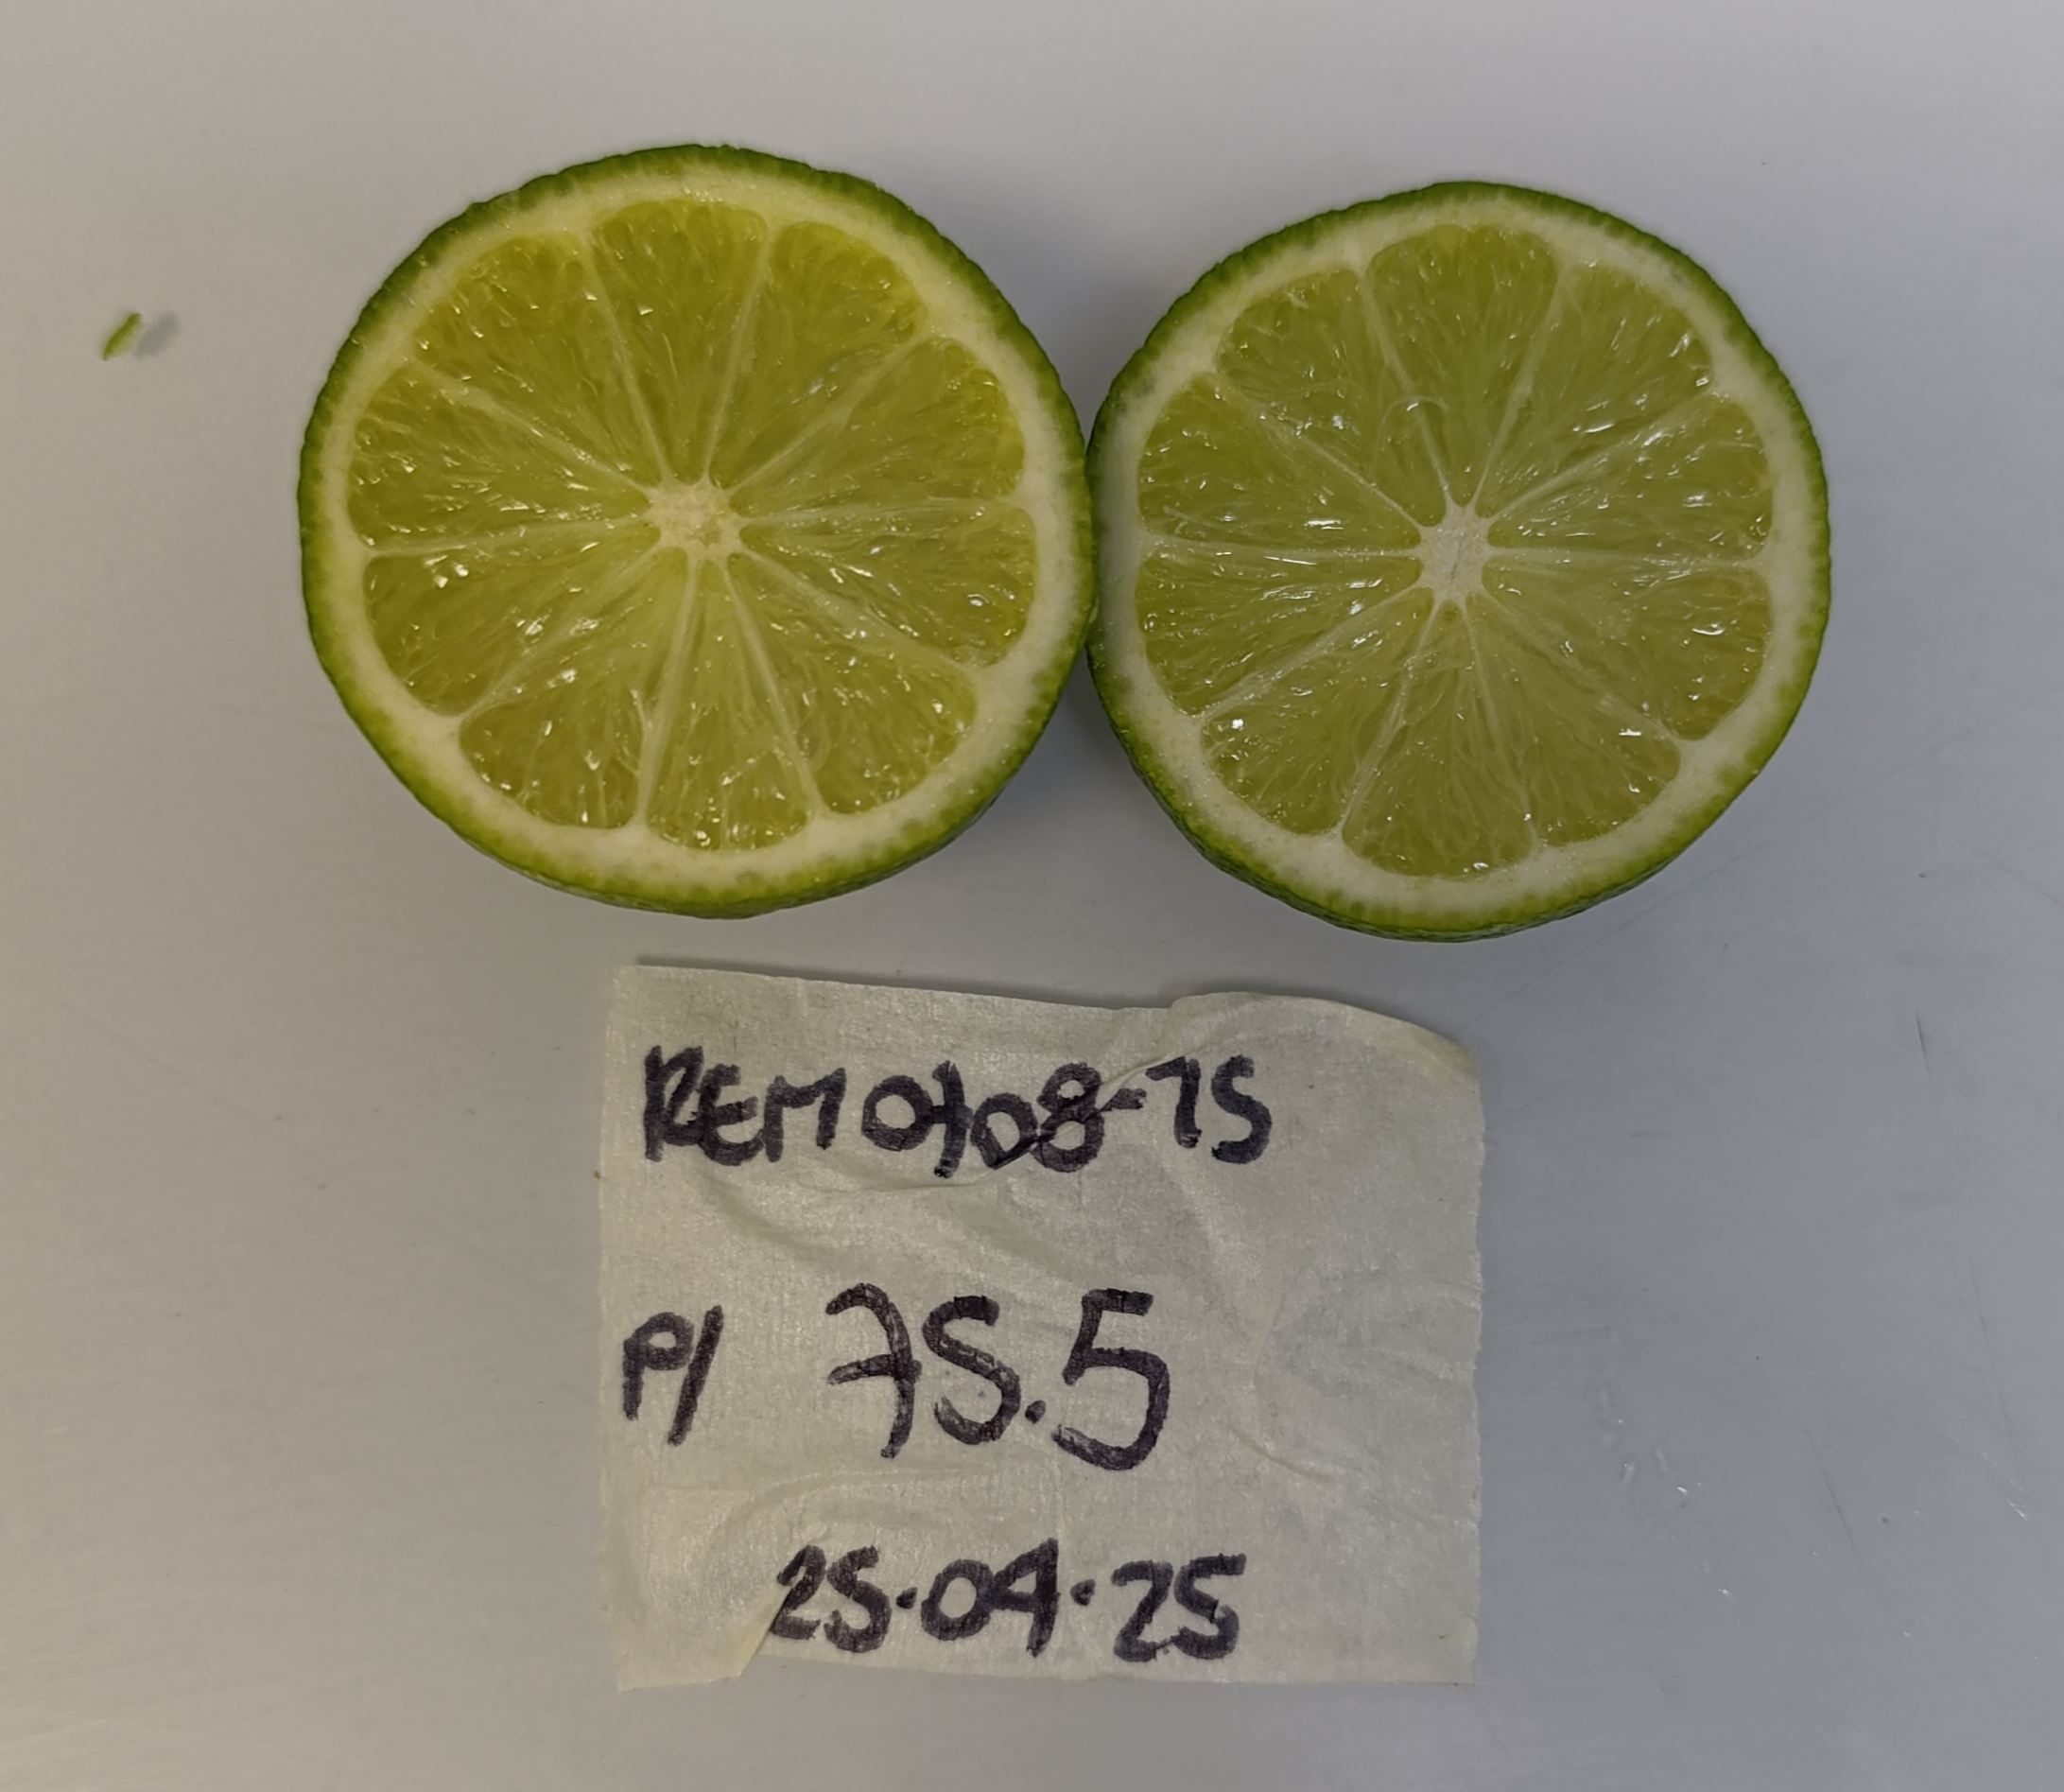 REM0708-15
P/ 75.5
25.04.25